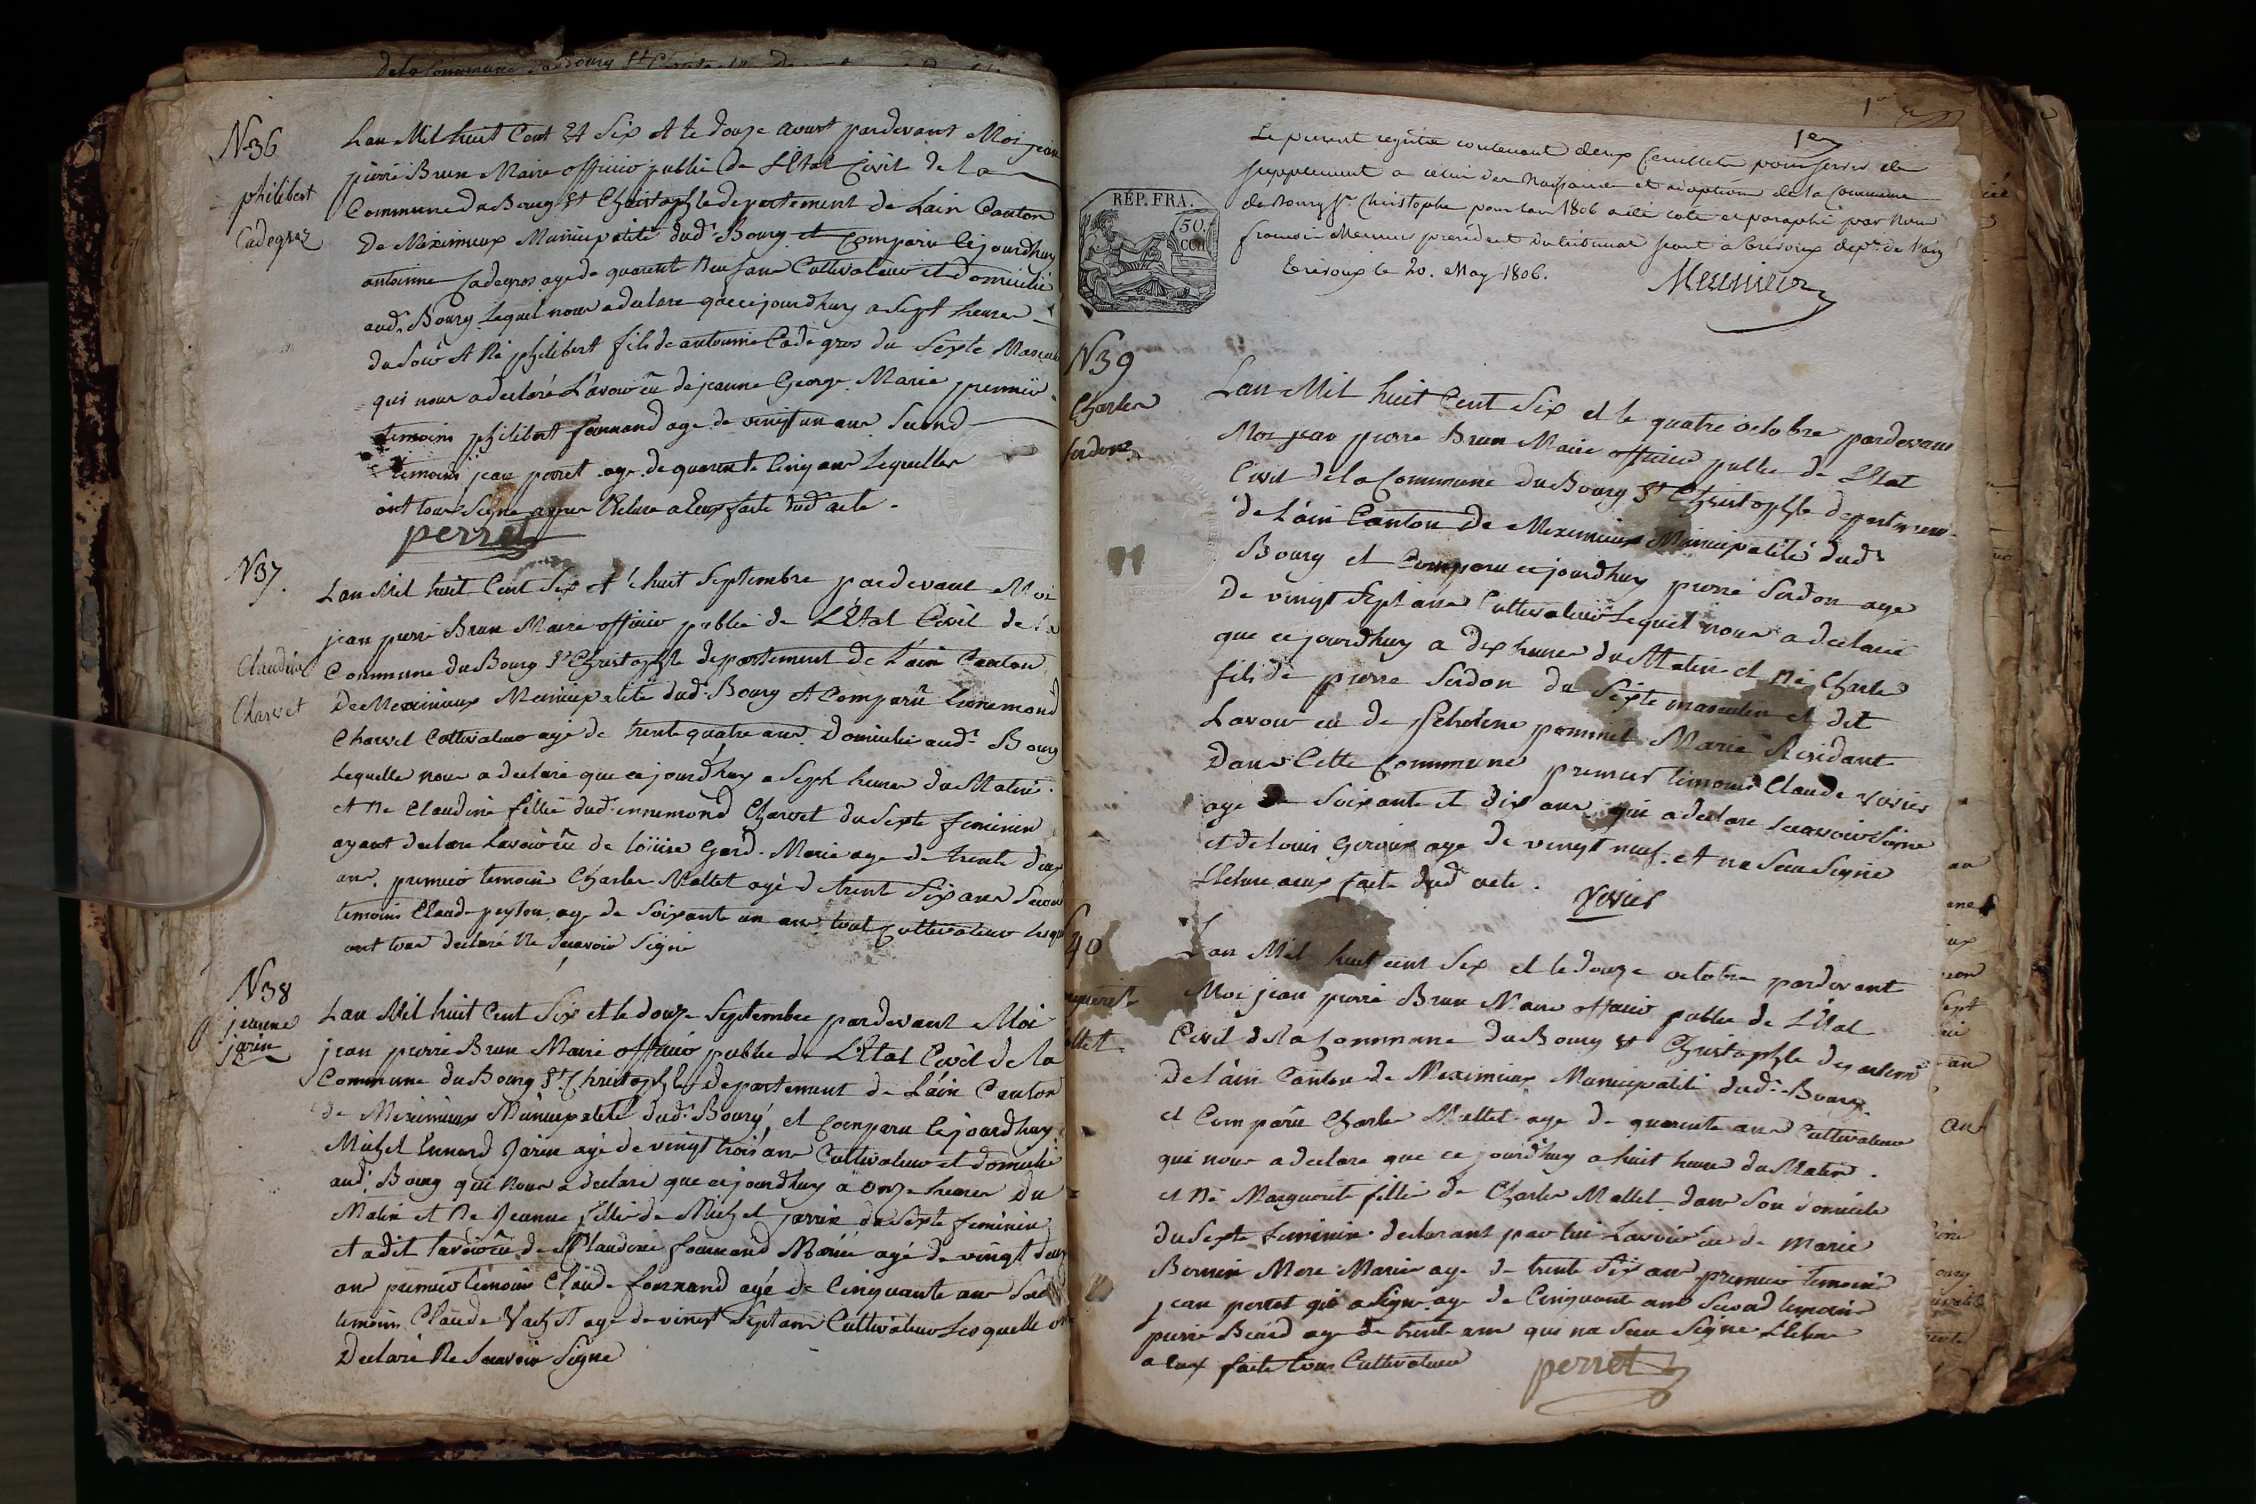 N36
philibert
Cadegroz
Lan Mil huit Cent et Six et le douze aoust pardevant Moi jean
pierre Brun Maire officier public de L'Etat Civil de la
Commune du Bourg St Christophle departement de Lain Canton
De Meximieux Municipalité dud. Bourg et Comparu Cejourdhuy
antoinne Cadegros age de quarent Neuf ans Cultivateur et Domicilié
aud. Bourg Lequel nous a declare que cejourdhuy a Sept heures
du Soir et Né philibert fils de antoinne Cadegros du Sexte Masculin
qui nous a declaré L'avoir eu de jeanne George Marie premier
temoins philibert fournand age de vingt un ans Second
temoins jean perret age de quarente Cinq ans Lequelles
ont tous Signe apres Lecture a Eux faite dud. acte.
perret
N37.
Claudine
Charvet
Lan Mil huit Cent Six et le huit Septembre pardevant Moi
jean pierre Brun Maire officier public de L'Etat Civil de la
Commune du Bourg St Christophle departement de L'ain Canton
De Meximieux Municipalité dud. Bourg et Comparu Ennemond
Charvet Cultivateur agé de trente quatre ans Domicilié aud. Bourg
Lequelle nous a declaré que cejourdhuy a Sept heures du Matin
et Ne Claudine fillie dud. ennemond Charvet du Sexte feminin
ayant declare Lavoir eu de Loüise Gard. Marie age de trente deux
ans. premier temoin Charles Mallet agé de trent Six ans Second
temoins Claude peyton age de Soixante un ans tout Cultivateur Lesquelles
ont tous declaré Ne Scavoir Signé
N38
jeanne
jarin
Lan Mil huit Cent Six et le douze Septembre pardevant Moi
jean pierre Brun Maire officier public de L'Etat Civil de la
Commune du Bourg St Christophle departement de L'ain Canton
de Meximieux Municipalité dud. Bourg, et Comparu Cejourdhuy
Michel Jarin agé de vingt trois ans Cultivateur et domicilié
aud. Bourg qui Nous a declaré que cejourdhuy a onze heures Du
Matin et Ne Jeanne fillie de Michel jarrin du Sexte feminin
et a dit lavoir eu de Claudine fournand Marié agé de vingt deux
an premier temoins Claude fournand agé de Cinquante ans Second
temoins Claude Vachet age de vingt Sept ans Cultivateur Lesquelle ont
Declaré Ne Scavoir Signe
1er
Le present registre contenant deux feuillets pour servir de
supplement a celui des Naissances et adoptions de la Commune
de Bourg St Christophe pour l'an 1806 a été coté et paraphé par Nous
françois Meunier president du tribunal seant a trevoux dept de l'ain
trevoux le 20. May 1806.
Meunier
RÉP. FRA.
50.
N39
Charles
Sordon
Lan Mil huit Cent Six et le quatre octobre pardevant
Moi jean pierre Brun Maire officier public de L'Etat
Civil de la Commune du Bourg St Christophle departement
de L'ain Canton de Meximieux Municipalité dud.
Bourg et Comparu cejourdhuy pierre Sordon age
De vingt Sept ans Cultivateur Lequel nous a declaré
que cejourdhuy a dix heures du Matin et Né Charles
fils de pierre Sordon du Sexte masculin et dit
Lavoir eu de pommet Marié Residant
Dans Cette Commune premier temoins Claude vivier
age de Soixante et dix ans qui a declare Scavoir Signe
et de Louis Giroux age de vingt neuf et na Seu Signe
Lecture a eux faite dud. acte.
vivier
40
Lan Mil huit cent Six et le douze octobre pardevant
Moi jean pierre Brun Maire officier public de L'Etat
Civil de la Commune du Bourg St Christophle departem
De L'ain Canton de Meximieux Municipalité dud. Bourg
et Comparu Charles Mallet age de quarente ans Cultivateur
qui nous a declare que cejourdhuy a huit heures du Matin
et Né Marguerite fillie de Charles Mallet dans Son domicile
du Sexte feminin declarant par lui Lavoir eu de Marie
Bernin Mere Marié age de trente Six ans premier temoins
jean perret qui a Signe age de Cinquante ans Second temoins
pierre Béard age de trente ans qui na Seu Signe Lecture
a Eux faite tous Cultivateur
perret